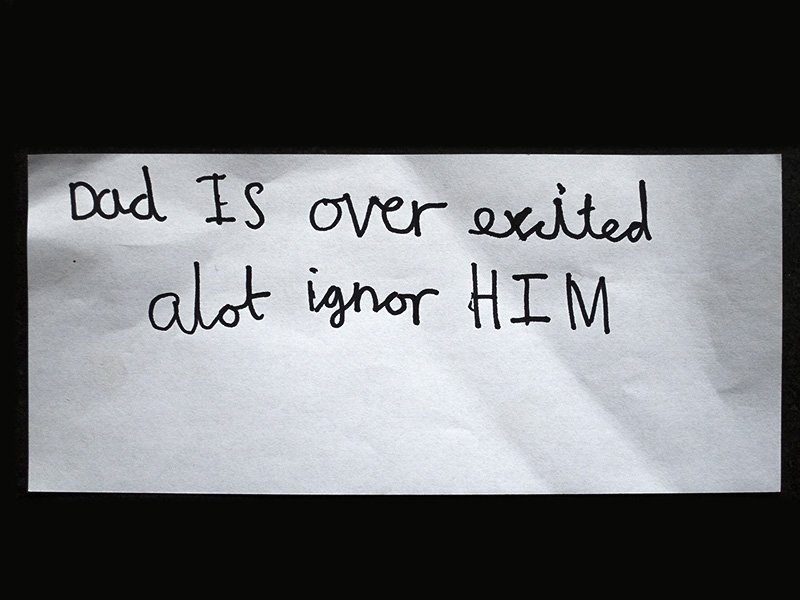 Dad Is over exited
alot ignor HIM